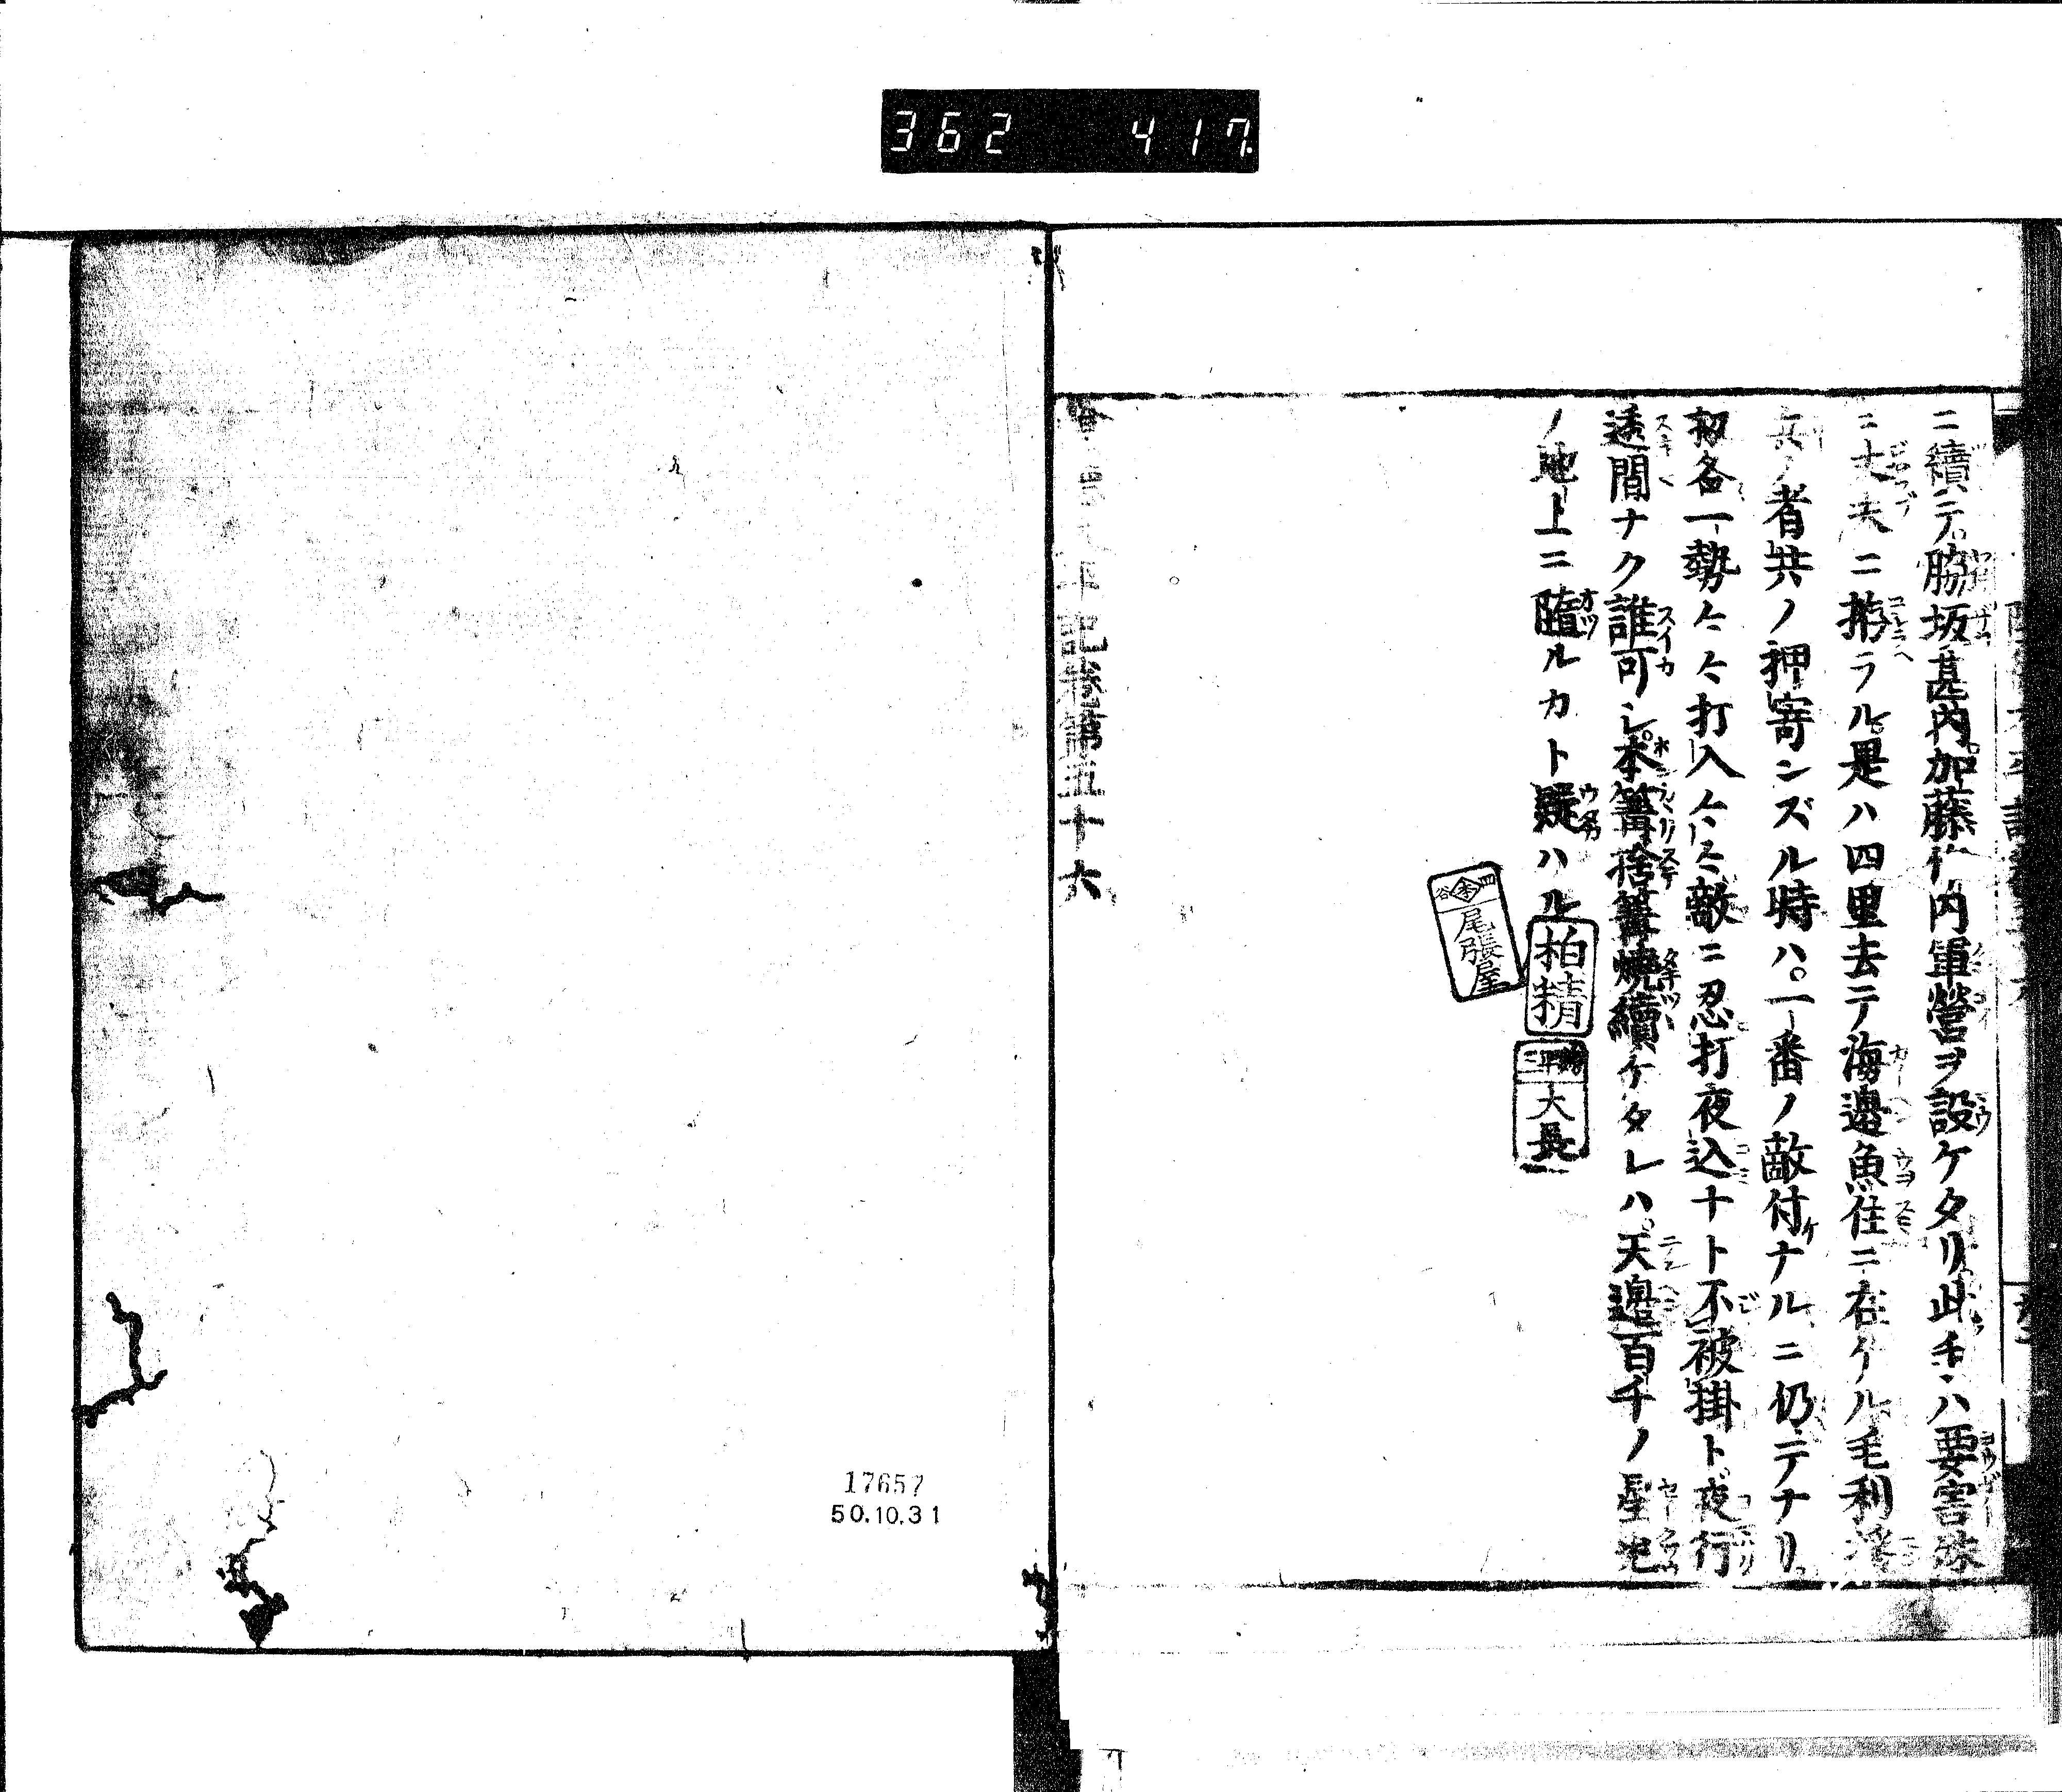 362 417
ニ續テ。脇坂甚内。加藤仁内軍營ヲ設ケタリ此手ハ要害
ニ丈夫ニ拵ラル。是ハ四里去テ海邊魚住ニ在ケル毛利
兵ノ者共ノ押寄ンズル時ハ。一番ノ敵付ナルニ仍テナリ。
初各一勢〻〻打入〻〻敵ニ忍打夜込ナト不被掛ト。夜行
透間ナク誰可シ。本篝捨篝燒續ケタレハ。天邊百千ノ星
ノ地上ニ隕ルカト疑ハル
四 李 谷
尾張屋
柏精
大長
平記卷第五十六
17657
50.10.31